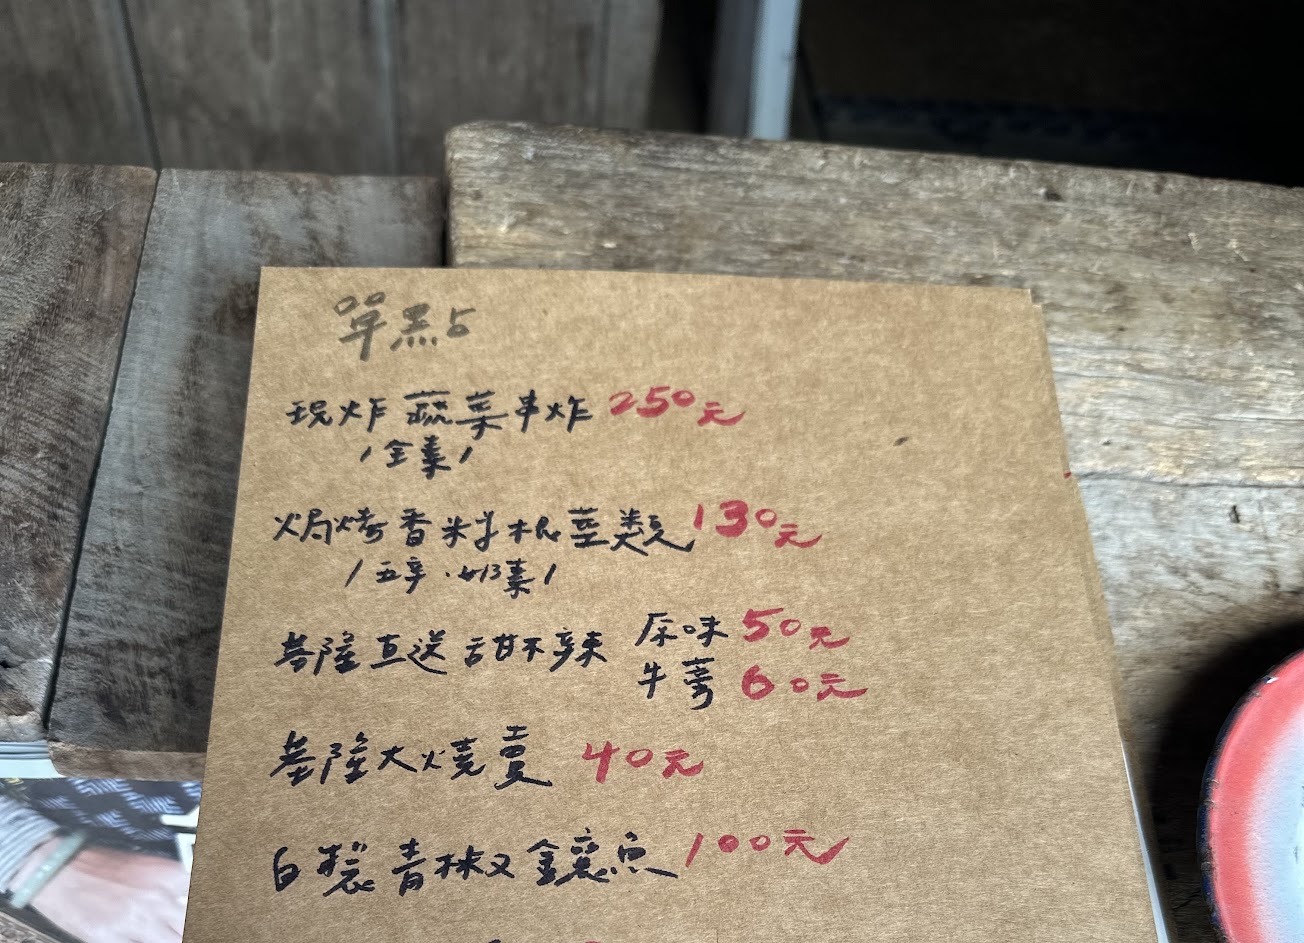 單點
現炸蔬菜串炸 250元
/全素/
焗烤香料根莖類 130元
/五辛·奶素/
基隆直送甜不辣 原味 50元
牛蒡 60元
基隆大燒賣 40元
自製青椒又鑲魚 100元